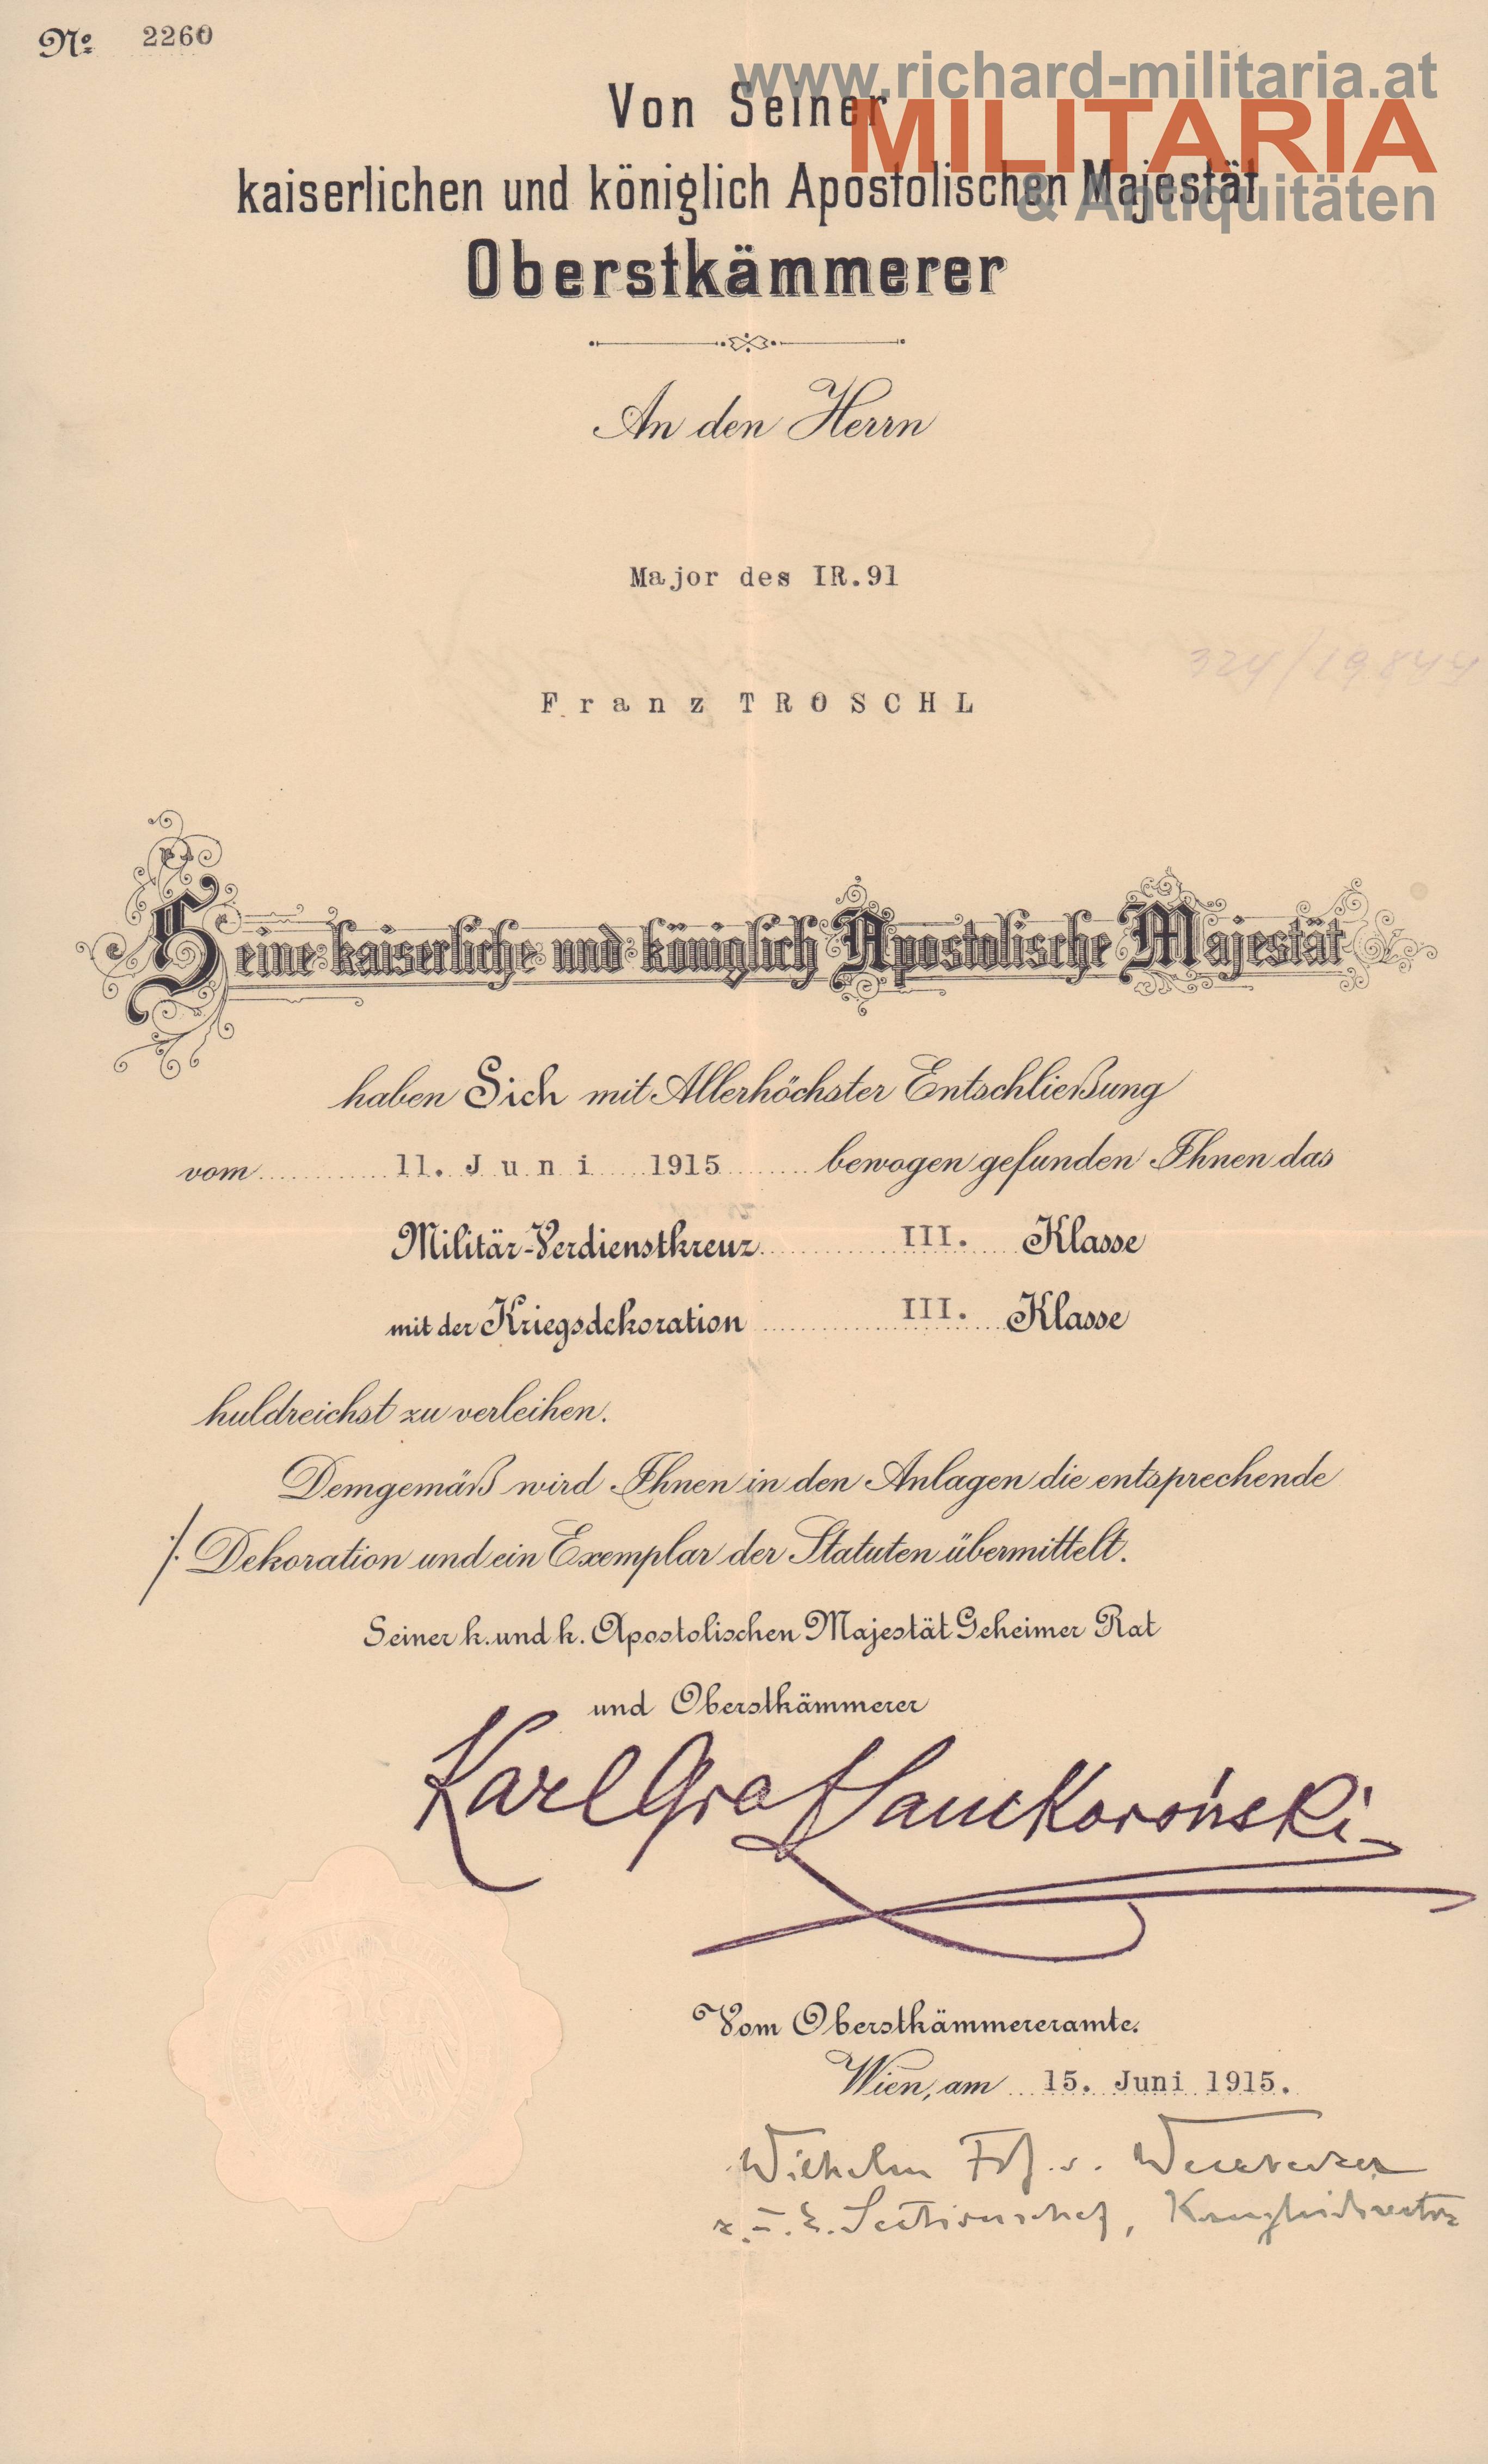 No 2260
www.richard-militaria.at
MILITARIA
& Antiquitäten
Von Seiner
kaiserlichen und königlich Apostolischen Majestät
Oberstkämmerer
An den Herrn
Major des IR.91
324/19844
Franz TROSCHL
Seine kaiserliche und königlich Apostolische Majestät
haben Sich mit Allerhöchster Entschließung
vom 11. Juni 1915 bewogen gefunden Ihnen das
Militär-Verdienstkreuz III. Klasse
mit der Kriegsdekoration III. Klasse
huldreichst zu verleihen.
Demgemäß wird Ihnen in den Anlagen die entsprechende
./. Dekoration und ein Exemplar der Statuten übermittelt.
Seiner k. und k. Apostolischen Majestät Geheimer Rat
und Oberstkämmerer
Karl Graf Lanckoroński
Vom Oberstkämmereramte.
Wien, am 15. Juni 1915.
Wilhelm v.
Sectionschef, Kanzleidirector